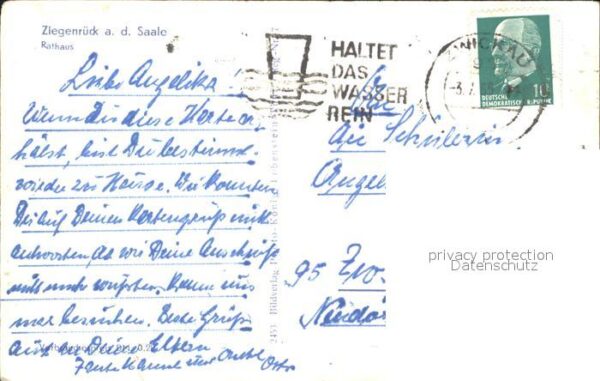 Ziegenrück a. d. Saale
Rathaus
Liebe Angelika!
Wenn Du diese Karte er
hälst, bist Du bestimmt
wieder zu Hause. Wir konnten
Dir auf Deinen Kartengruß nicht
antworten, da wir Deine Anschrift
nicht mehr wußten. Komm uns
mal besuchen. Beste Grüße
auch an Deine Eltern
Tante Hanne und Onkel
Otto
HALTET
DAS
WASSER
REIN
ZWICKAU
DEUTSCHE
DEMOKRATISCHE REPUBLIK
10
An Schülerin
Angel
95 Zw
privacy protection
Datenschutz